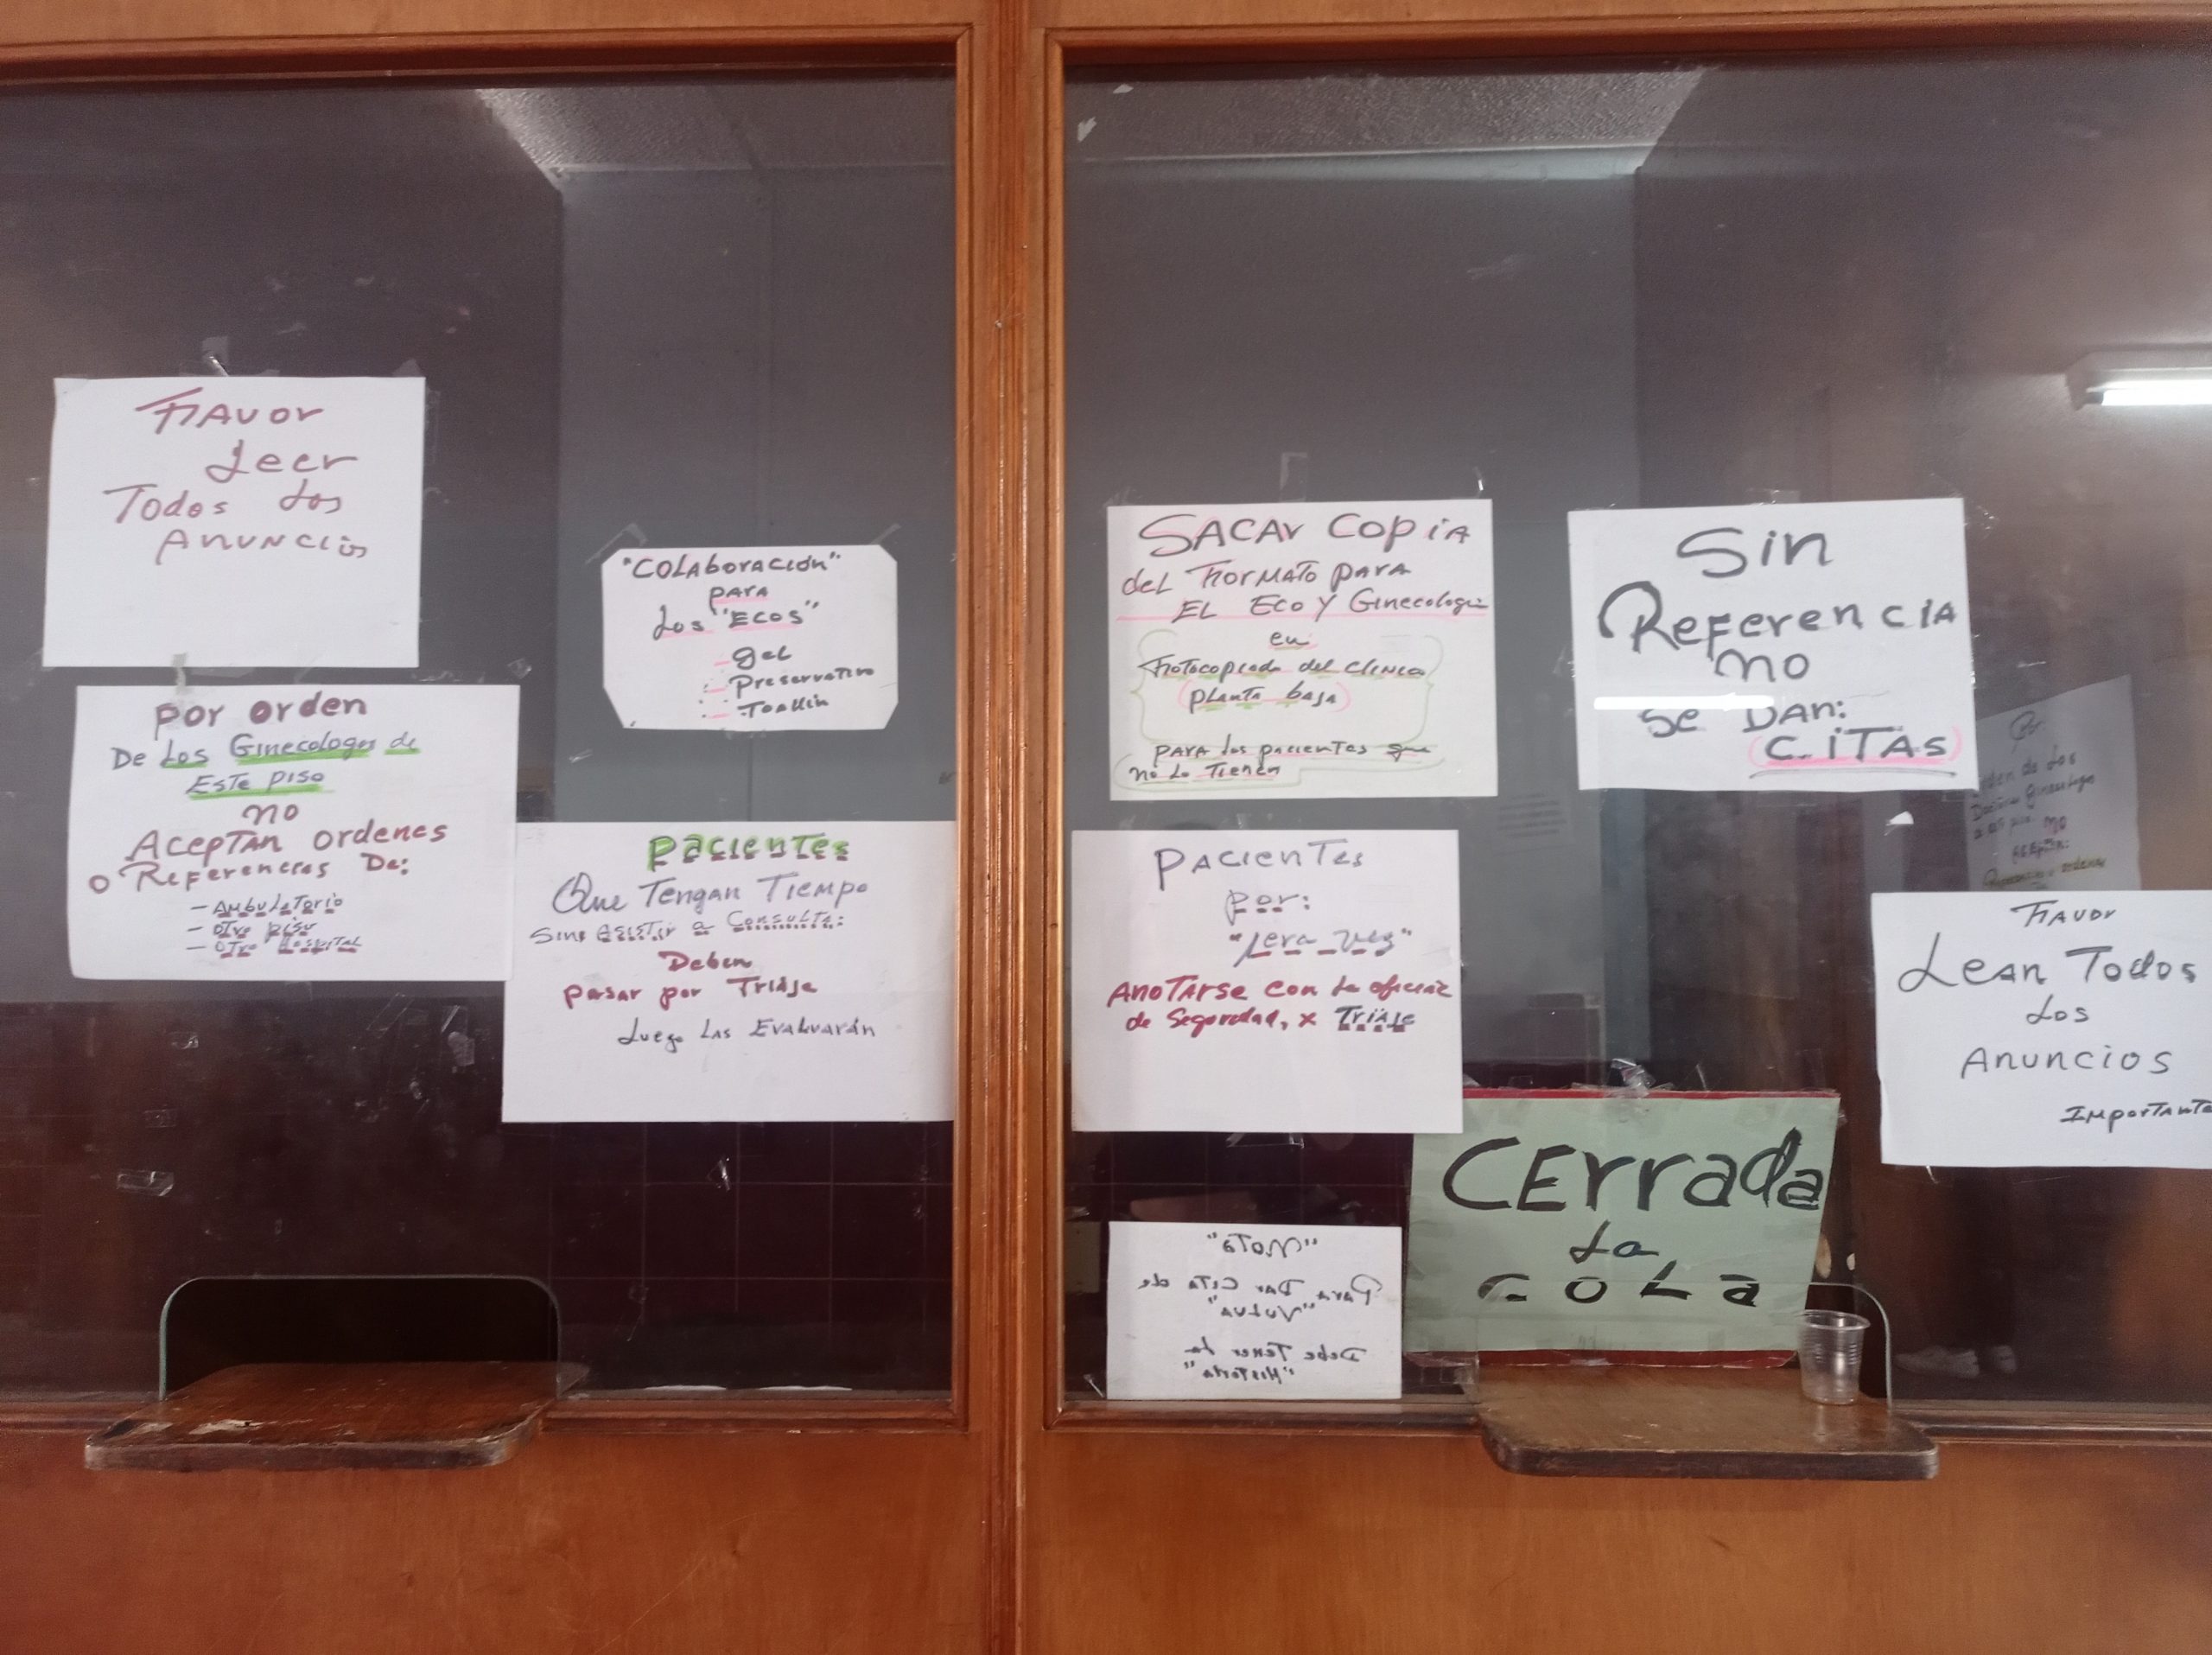 Favor
Leer
Todos Los
Anuncios
Por orden
De Los Ginecologos de
Este piso
no
Aceptan ordenes
o Referencias De:
- Ambulatorio
- otro piso
- otro Hospital
"COLaboración"
para
Los "Ecos"
- gel
- Preservativo
- Toallin
Pacientes
Que Tengan Tiempo
Sin asistir a Consulta:
Deben
pasar por Triaje
Luego Las Evaluarán
SACAr Copia
del Formato para
EL Eco Y Ginecologia
en
Fotocopiado del Clinico
planta baja
para los pacientes que
no Lo Tienen
Sin
Referencia
no
se Dan:
CITAS
Pacientes
por:
"1era vez"
Anotarse con la oficial
de Seguridad, x Triaje
Por
orden de Los
Ginecologos
no
Aceptan:
ordenes
Favor
Lean Todos
Los
Anuncios
Importante
CErrada
La
COLa
"Nota"
Para Dar Cita de
"Vulva"
Debe Tener La
"Historia"